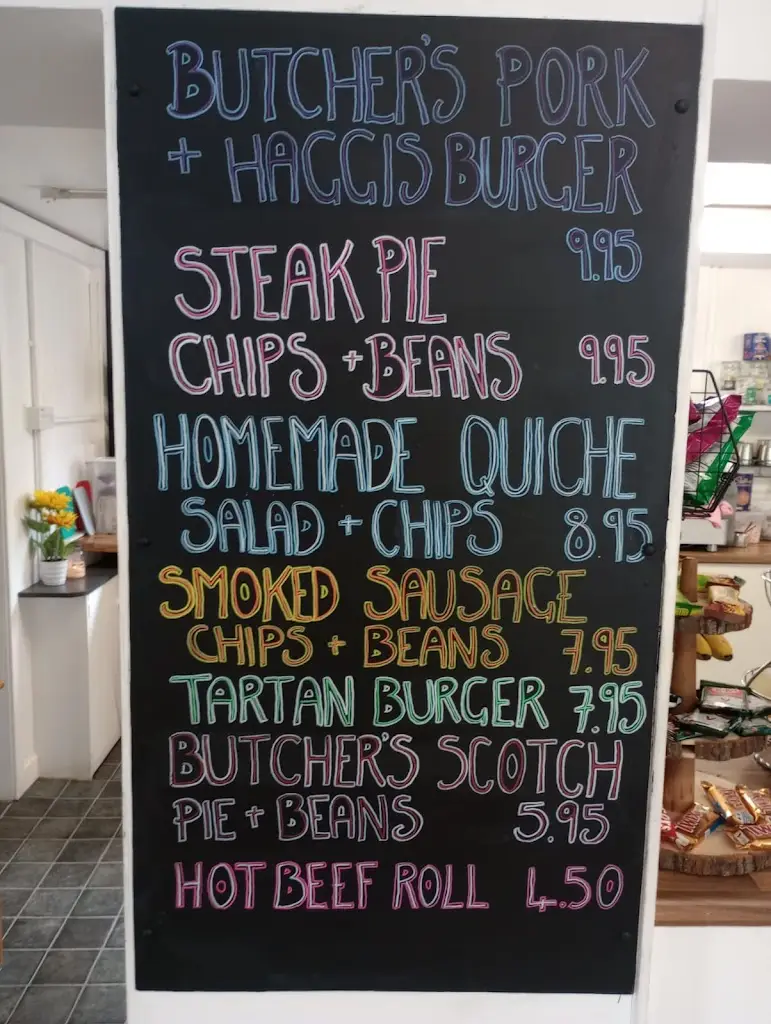 BUTCHER'S PORK
+ HAGGIS BURGER
9.95
STEAK PIE
CHIPS + BEANS 9.95
HOMEMADE QUICHE
SALAD + CHIPS 8.95
SMOKED SAUSAGE
CHIPS + BEANS 7.95
TARTAN BURGER 7.95
BUTCHER'S SCOTCH
PIE + BEANS 5.95
HOT BEEF ROLL 4.50